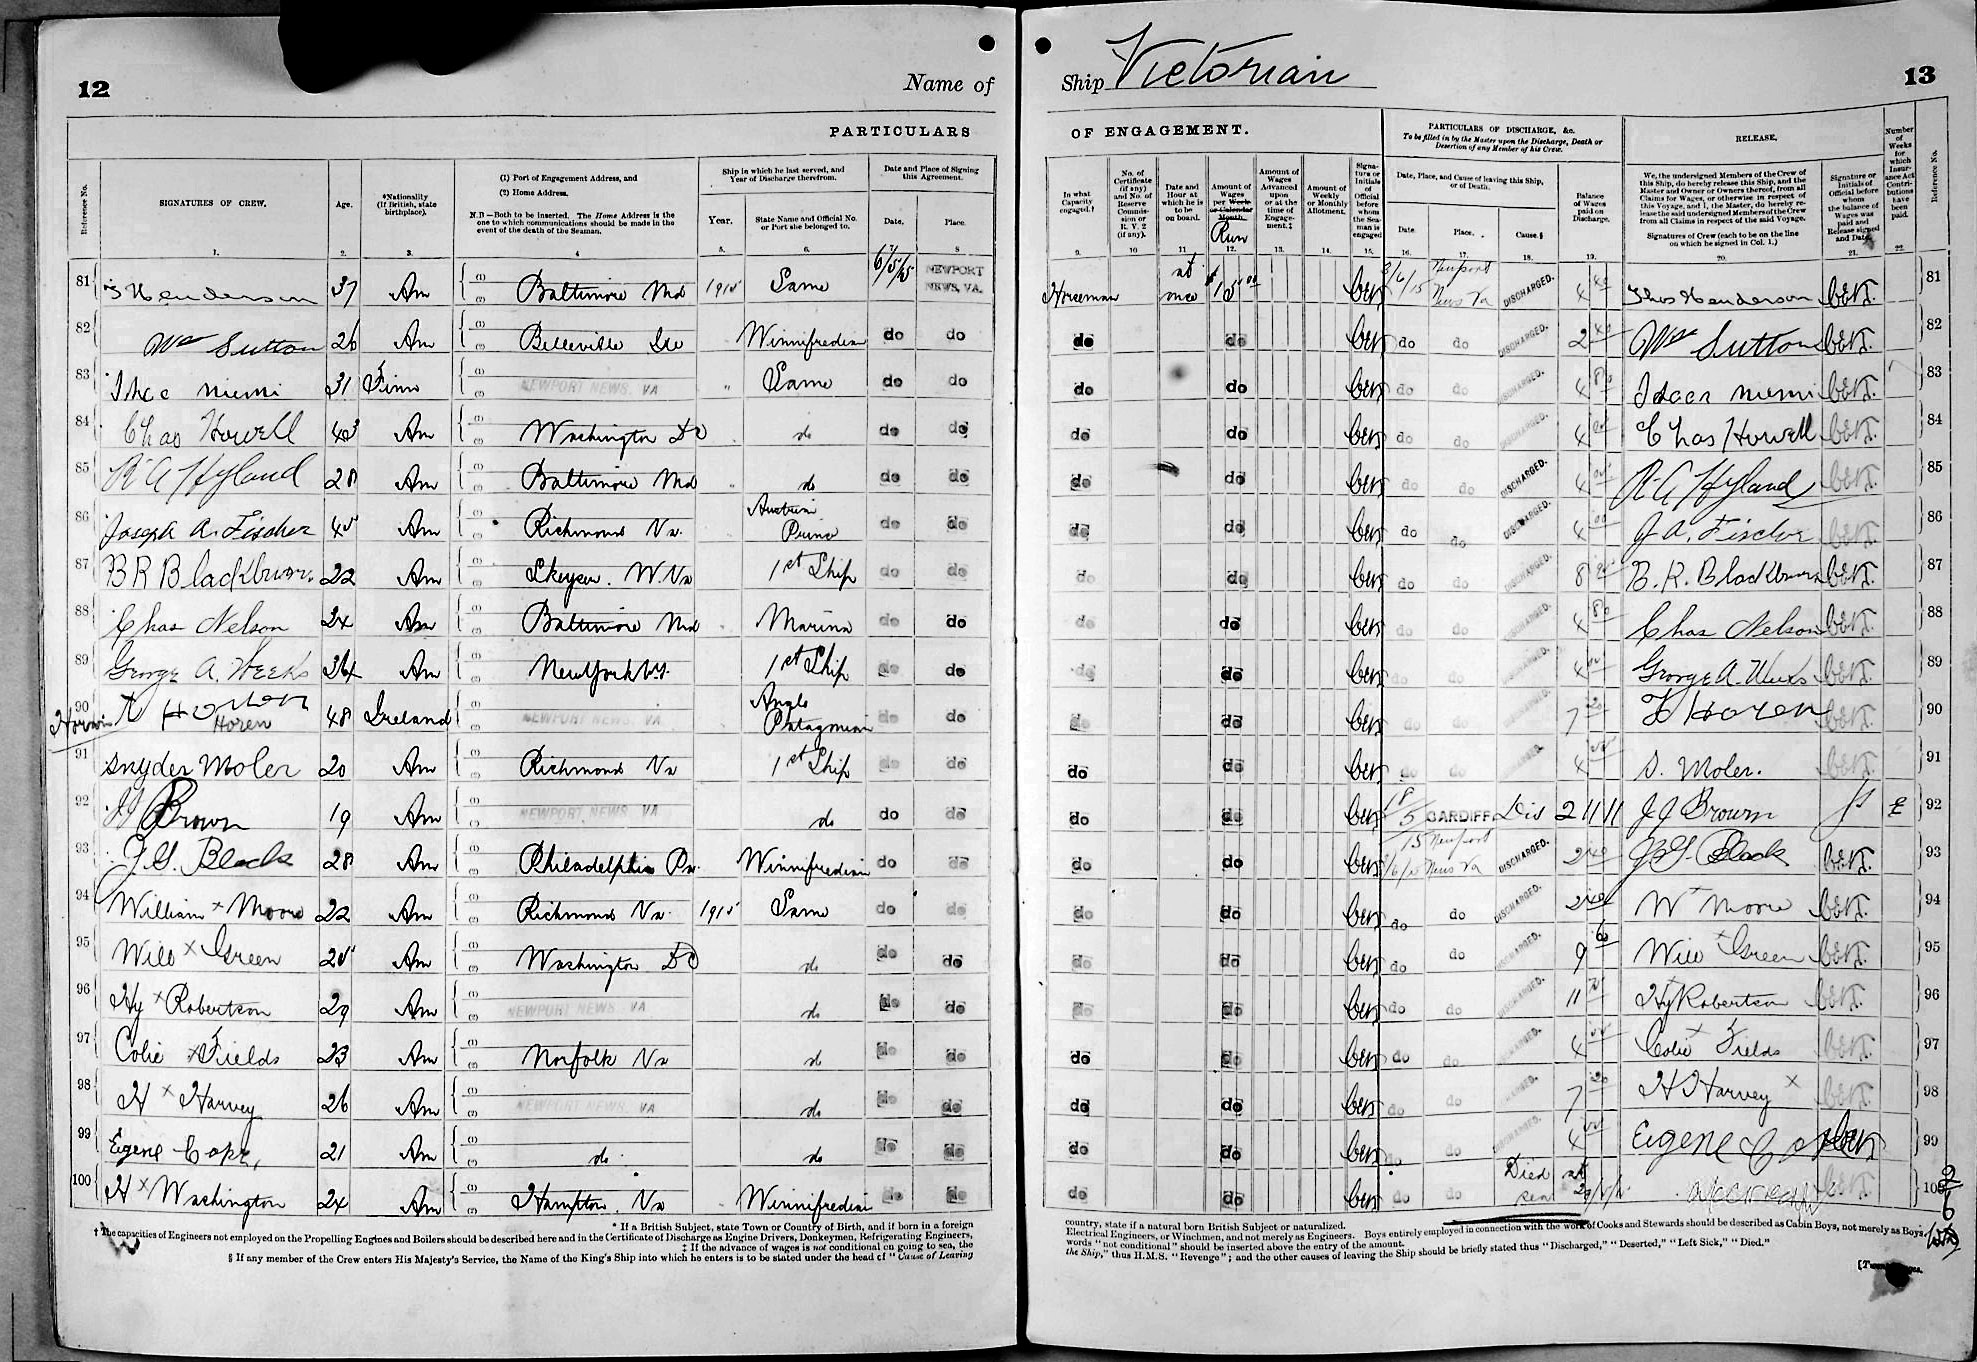 12
Name of
PARTICULARS
Reference No.
SIGNATURES OF CREW.
Age.
*Nationality
(If British, state
birthplace).
(1) Port of Engagement Address, and
(2) Home Address.
N.B —Both to be inserted. The Home Address is the
one to which communications should be made in the
event of the death of the Seaman.
Ship in which he last served, and
Year of Discharge therefrom.
Year.
State Name and Official No.
or Port she belonged to.
Date and Place of Signing
this Agreement.
Date.
Place.
1. 2. 3. 4 5. 6. 7 8
81 Henderson 37 Am (1) (2) Baltimore Md 1915 Same 6/5/15 NEWPORT NEWS, VA.
82 Wm Sutton 26 Am (1) (2) Belleville Winnifredian do do
83 niemi 31 Finn (1) (2) NEWPORT NEWS, VA " Same do do
84 Chas Howell 43 Am (1) (2) Washington DC do do do
85 R A Hyland 28 Am (1) (2) Baltimore Md do do do
86 Joseph A. Fischer 45 Am (1) (2) Richmond Va. Prince do do
87 B R Blackburn 22 Am (1) (2) W. Va 1st Ship do do
88 Chas Nelson 24 Am (1) (2) Baltimore Md Marina do do
89 George A. Weeks 36 Am (1) (2) New York 1st Ship do do
90 Horen 48 Ireland (1) (2) NEWPORT NEWS, VA Anglo Patagonian do do
91 Snyder Moler 20 Am (1) (2) Richmond Va 1st Ship do do
92 JJ Brown 19 Am (1) (2) NEWPORT NEWS, VA do do do
93 J. G. Black 28 Am (1) (2) Philadelphia Pa. Winnifredian do do
94 William x Moore 22 Am (1) (2) Richmond Va. 1915 Same do do
95 Will x Green 25 Am (1) (2) Washington DC do do do
96 Hy x Robertson 29 Am (1) (2) NEWPORT NEWS, VA do do do
97 Colie x Fields 23 Am (1) (2) Norfolk Va do do do
98 H x Harvey 26 Am (1) (2) NEWPORT NEWS, VA do do do
99 Eigene 21 Am (1) (2) do do do do
100 H x Washington 24 Am (1) (2) Hampton. Va Winnifredian do do
* If a British Subject, state Town or Country of Birth, and if born in a foreign
† The capacities of Engineers not employed on the Propelling Engines and Boilers should be described here and in the Certificate of Discharge as Engine Drivers, Donkeymen, Refrigerating Engineers,
‡ If the advance of wages is not conditional on going to sea, the
§ If any member of the Crew enters His Majesty's Service, the Name of the King's Ship into which he enters is to be stated under the head of "Cause of Leaving
Ship Victorian
13
OF ENGAGEMENT.
PARTICULARS OF DISCHARGE, &c.
To be filled in by the Master upon the Discharge, Death or
Desertion of any Member of his Crew.
RELEASE.
Number of Weeks for which Insurance Act Contributions have been paid.
Reference No.
In what Capacity engaged.†
No. of Certificate (if any) and No. of Reserve Commission or R. V. 2 (if any).
Date and Hour at which he is to be on board.
Amount of Wages per Week or Calendar Month. Run
Amount of Wages Advanced upon or at the time of Engagement.‡
Amount of Weekly or Monthly Allotment.
Signature or Initials of Official before whom the Seaman is engaged
Date, Place, and Cause of leaving this Ship,
or of Death.
Date.
Place.
Cause.§
Balance of Wages paid on Discharge.
We, the undersigned Members of the Crew of
this Ship, do hereby release this Ship, and the
Master and Owner or Owners thereof, from all
Claims for Wages, or otherwise in respect of
this Voyage, and I, the Master, do hereby release the said undersigned Members of the Crew
from all Claims in respect of the said Voyage.
Signatures of Crew (each to be on the line
on which he signed in Col. 1.)
Signature or Initials of Official before whom the balance of Wages was paid and Release signed and Date.
9. 10 11 12. 13. 14. 15. 16. 17. 18. 19. 20. 21. 22
Horseman at once $15.00 Newport News Va DISCHARGED. Thos Henderson 81
do do do do DISCHARGED. Wm Sutton 82
do do do do DISCHARGED. niemi 83
do do do do DISCHARGED. Chas Howell 84
do do do do DISCHARGED. R A Hyland 85
do do do do DISCHARGED. J A. Fischer 86
do do do do DISCHARGED. B. R. Blackburn 87
do do do do DISCHARGED. Chas Nelson 88
do do do do DISCHARGED. George A. Weeks 89
do do do do DISCHARGED. Horen 90
do do do do DISCHARGED. S. Moler. 91
do do 18/5/15 CARDIFF Dis 2 11 11 JJ Brown 92
do do Newport News Va DISCHARGED. Black 93
do do do do DISCHARGED. W x Moore 94
do do do do DISCHARGED. Will x Green 95
do do do do DISCHARGED. Hy Robertson 96
do do do do DISCHARGED. Colie x Fields 97
do do do do DISCHARGED. H Harvey x 98
do do do do DISCHARGED. Eigene 99
do do do do Died at sea 100
country, state if a natural born British Subject or naturalized.
Electrical Engineers, or Winchmen, and not merely as Engineers. Boys entirely employed in connection with the work of Cooks and Stewards should be described as Cabin Boys, not merely as Boys.
words "not conditional" should be inserted above the entry of the amount.
the Ship," thus H.M.S. "Revenge"; and the other causes of leaving the Ship should be briefly stated thus "Discharged," "Deserted," "Left Sick," "Died."